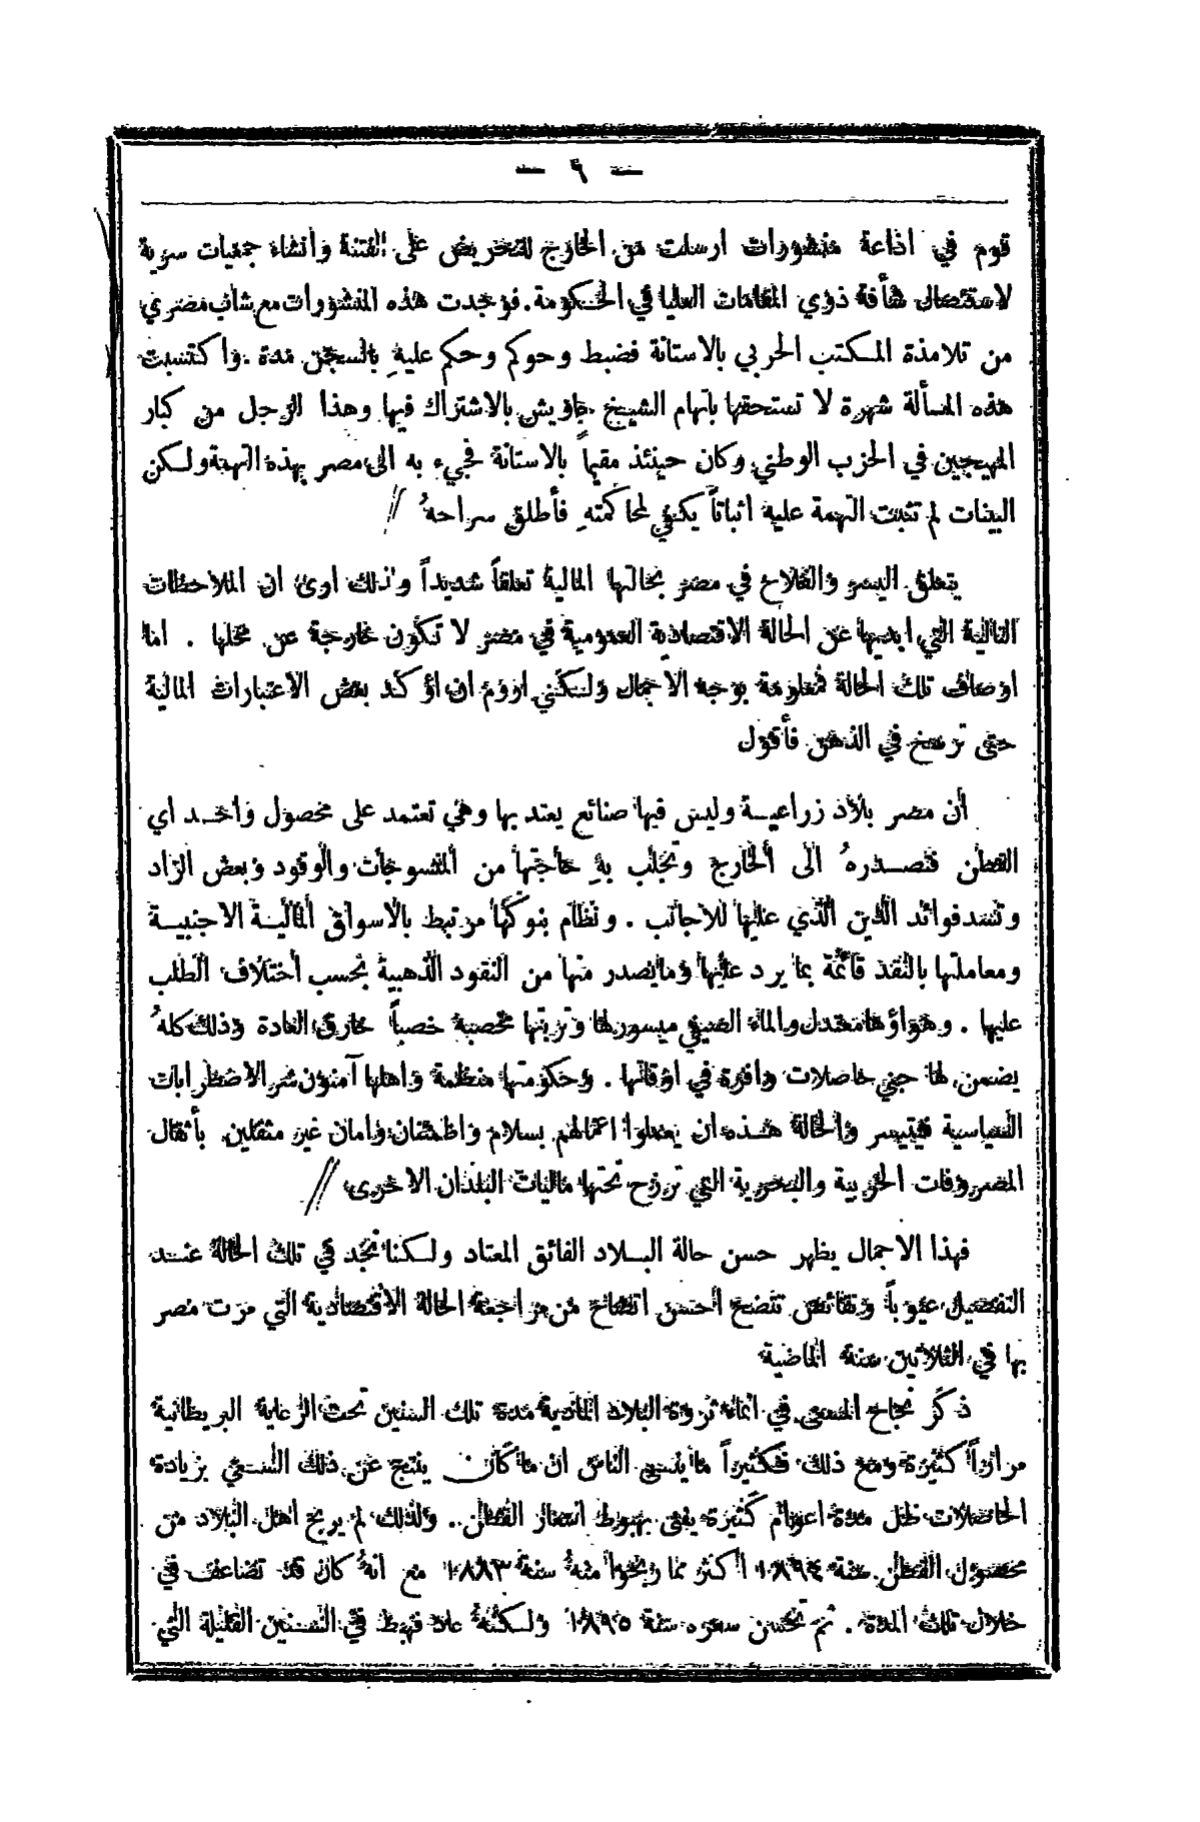 — ٦ —
قوم في اذاعة منشورات ارسلت من الخارج للتحريض على الفتنة وانشاء جمعيات سرية
لاستئصال شأفة ذوي المقامات العليا في الحكومة . فوجدت هذه المنشورات مع شاب مصري
من تلامذة المكتب الحربي بالاستانة فضبط وحوكم وحكم عليهِ بالسجن مدة . واكتسبت
هذه المسألة شهرة لا تستحقها باتهام الشيخ جاويش بالاشتراك فيها وهذا الرجل من كبار
المهيجين في الحزب الوطني وكان حينئذ مقيماً بالاستانة فجيء به الى مصر بهذه التهمة ولكن
البينات لم تثبت التهمة عليهِ اثباتاً يكفي لمحاكمتهِ فأطلق سراحهُ //
يتعلق اليسر والفلاح في مصر بحالتها المالية تعلقاً شديداً ولذلك ارى ان الملاحظات
التالية التي ابديها عن الحالة الاقتصادية العمومية في مصر لا تكون خارجة عن محلها . اما
اوصاف تلك الحالة فمعلومة بوجه الاجمال ولكنني اروم ان اؤكد بعض الاعتبارات المالية
حتى ترسخ في الذهن فأقول
أن مصر بلاد زراعيـة وليس فيها صنائع يعتد بها وهي تعتمد على محصول واحـد اي
القطن فتصـدرهُ الى الخارج وتجلب بهِ حاجتها من المنسوجات والوقود وبعض الزاد
وتسد فوائد الدين الذي عليها للاجانب . ونظام بنوكها مرتبط بالاسواق المالية الاجنبيـة
ومعاملتها بالنقد قائمة بما يرد عليها وما يصدر منها من النقود الذهبية بحسب اختلاف الطلب
عليها . وهواؤها معتدل والماء الصيفي ميسور لها وتربتها مخصبة خصباً خارق العادة وذلك كلهُ
يضمن لها جني حاصلات وافرة في اوقاتها . وحكومتها منظمة واهلها آمنون شر الاضطرابات
السياسية فيتيسر والحالة هـذه ان يعملوا اعمالهم بسلام واطمئنان وامان غير مثقلين بأثقال
المصروفات الحربية والبحرية التي ترزح تحتها ماليات البلدان الاخرى //
فهذا الاجمال يظهر حسن حالة البـلاد الفائق المعتاد ولكننا نجد في تلك الحالة عنـد
التفصيل عيوباً ونقائص تتضح احسن اتضاح من مراجعة الحالة الاقتصادية التي مرت مصر
بها في الثلاثين سنة الماضية
ذكر نجاح المسعى في انماء ثروة البلاد المادية مدة تلك السنين تحت الرعاية البريطانية
مراراً كثيرة ومع ذلك فكثيراً ما ينسى الناس ان ما كان ينتج عن ذلك السعي بزيادة
الحاصلات ظل مدة اعوام كثيرة يفنى بهبوط اسعار القطن . ولذلك لم يربح اهل البلاد من
محصول القطن سنة ١٨٩٤ اكثر مما ربحوا منهُ سنة ١٨٨٣ مع انهُ كان قد تضاعف في
خلال تلك المدة . ثم تحسن سعره سنة ١٨٩٥ ولكنهُ عاد فهبط في السـنين القليلة التي